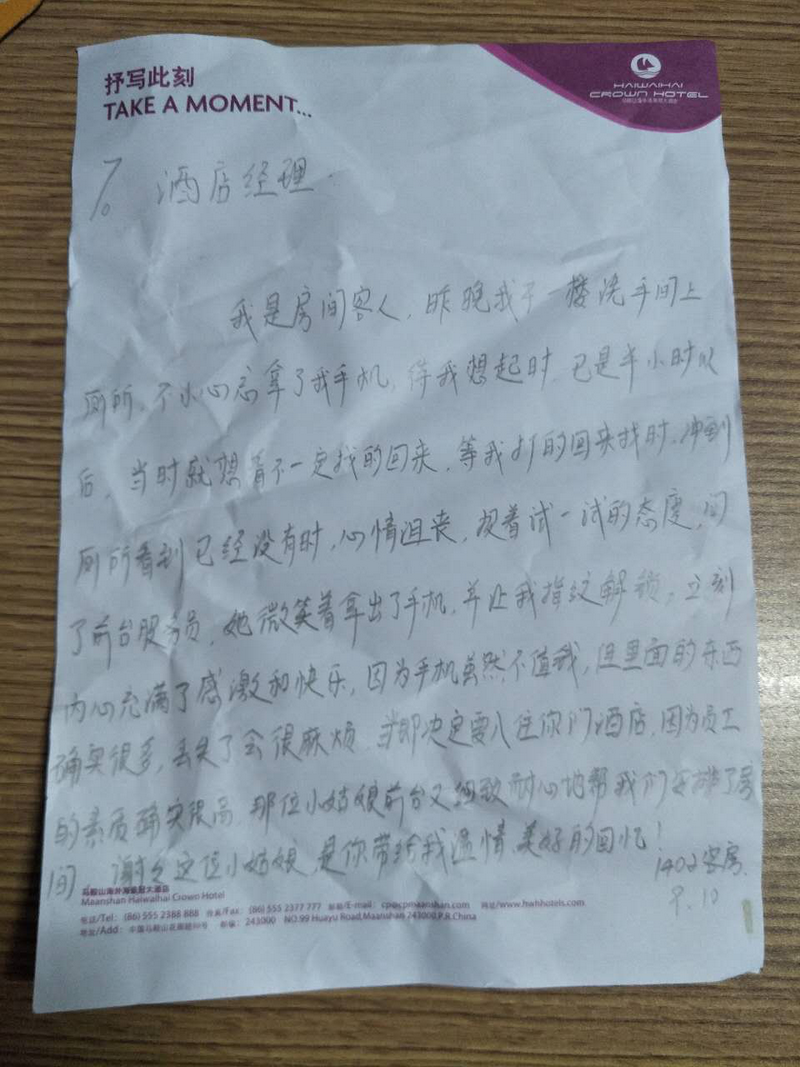 抒写此刻
TAKE A MOMENT...
HAIWAIHAI
CROWN HOTEL
马鞍山海外海皇冠大酒店
酒店经理
我是房间客人，昨晚我于一楼洗手间上
厕所，不小心忘拿了我手机，待我想起时，已是半小时以
后，当时就想着不一定找的回来，等我打的回来找时，冲到
厕所看到已经没有时，心情沮丧，抱着试一试的态度，问
了前台服务员，她微笑着拿出了手机，并让我指纹解锁，立刻
内心充满了感激和快乐，因为手机虽然不值钱，但里面的东西
确实很多，丢失了会很麻烦，当即决定要入住你们酒店，因为员工
的素质确实很高，那位小姑娘前台又细致耐心地帮我们安排了房
间，谢谢这位小姑娘，是你带给我温情、美好的回忆！
1402客房
9.10
马鞍山海外海皇冠大酒店
Maanshan Haiwaihai Crown Hotel
电话/Tel: (86) 555 2388 888 传真/Fax: (86) 555 2377 777 邮箱/E-mail: cpc@cpmaanshan.com 网址/www.hwhhotels.com
地址/Add: 中国马鞍山花雨路99号 邮编: 243000 NO.99 Huayu Road,Maanshan 243000,P.R.China